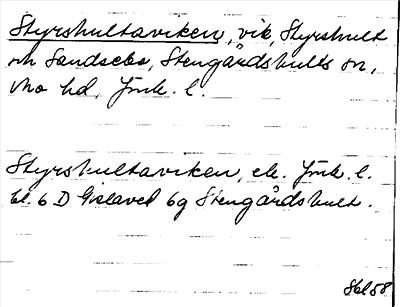 Styrshultaviken, vik, Styrshult
och Sandsebo, Stengårdshults sn,
Mo hd, Jönk. l.
Styrshultaviken, ek. Jönk. l.
bl. 6 D Gislaved 6g Stengårdshult.
Skl 58